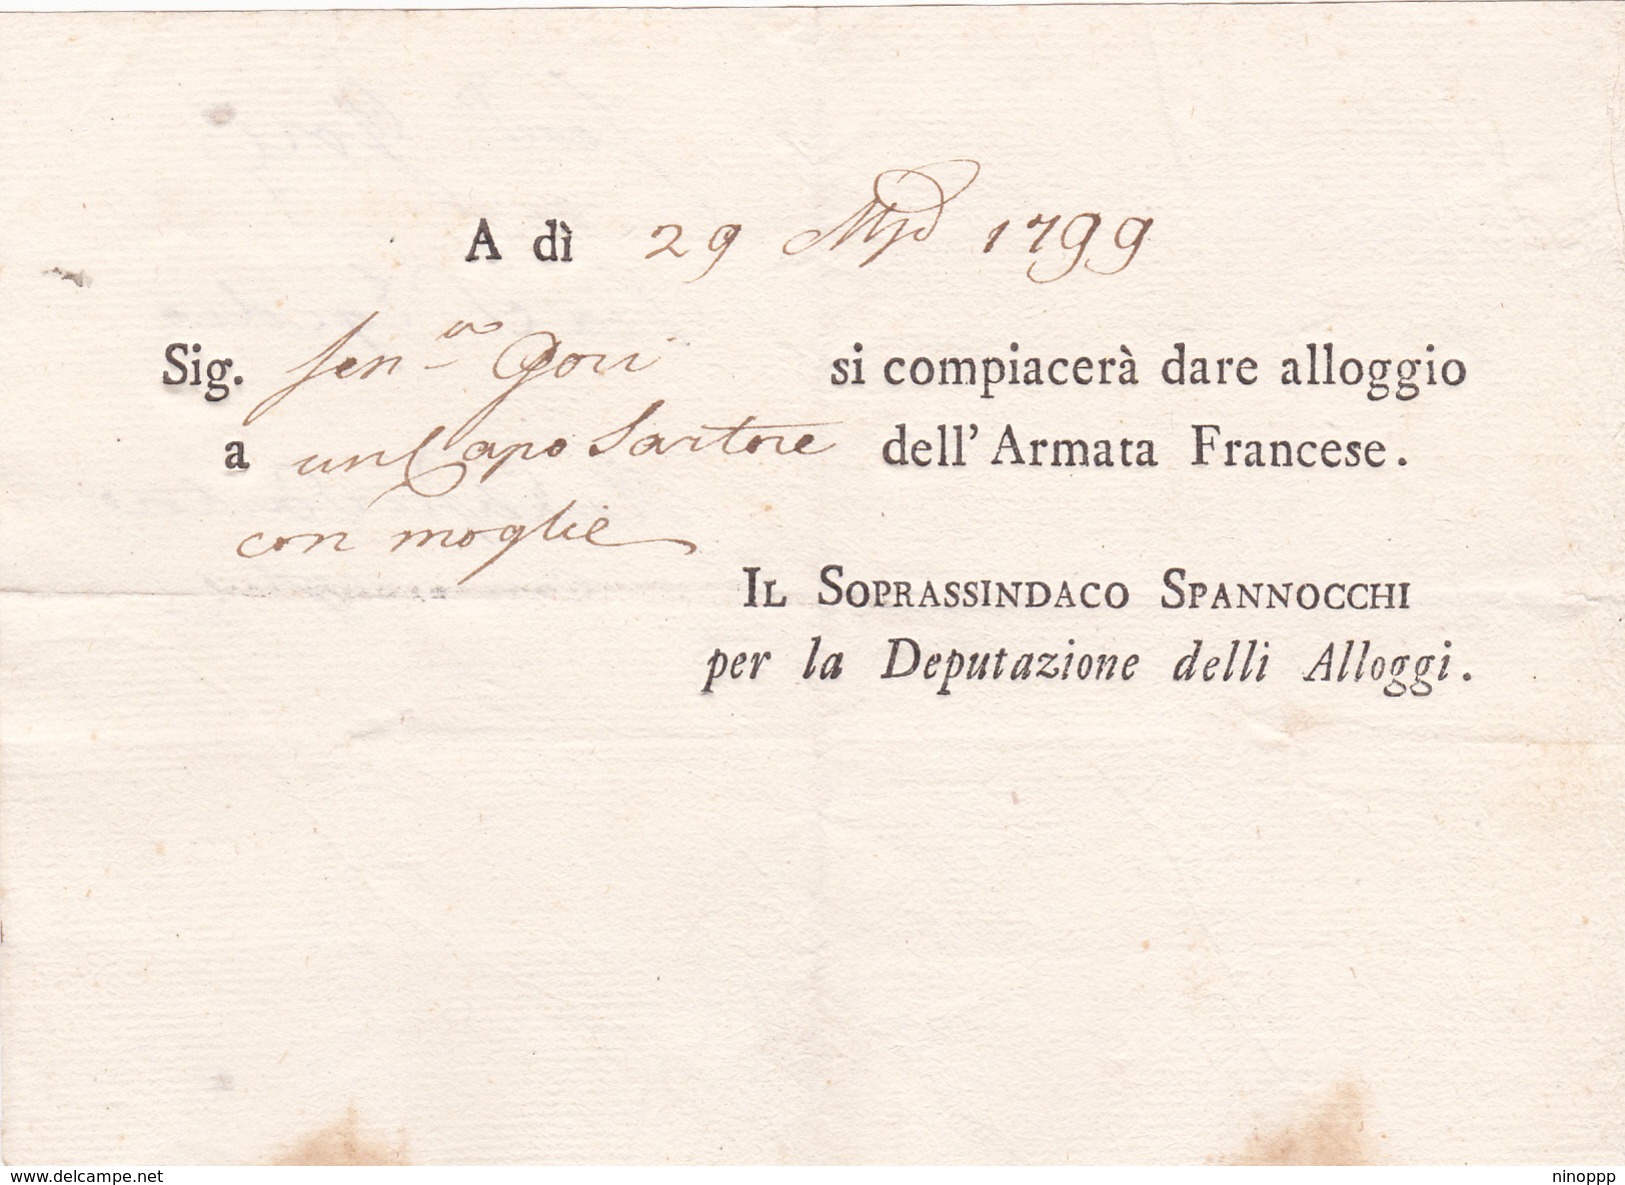 A dì 29 1799
Sig. Sen.re Gori si compiacerà dare alloggio
a un Capo Sartore dell' Armata Francese.
con moglie
IL SOPRASSINDACO SPANNOCCHI
per la Deputazione delli Alloggi.
www.delcampe.net
ninoppp